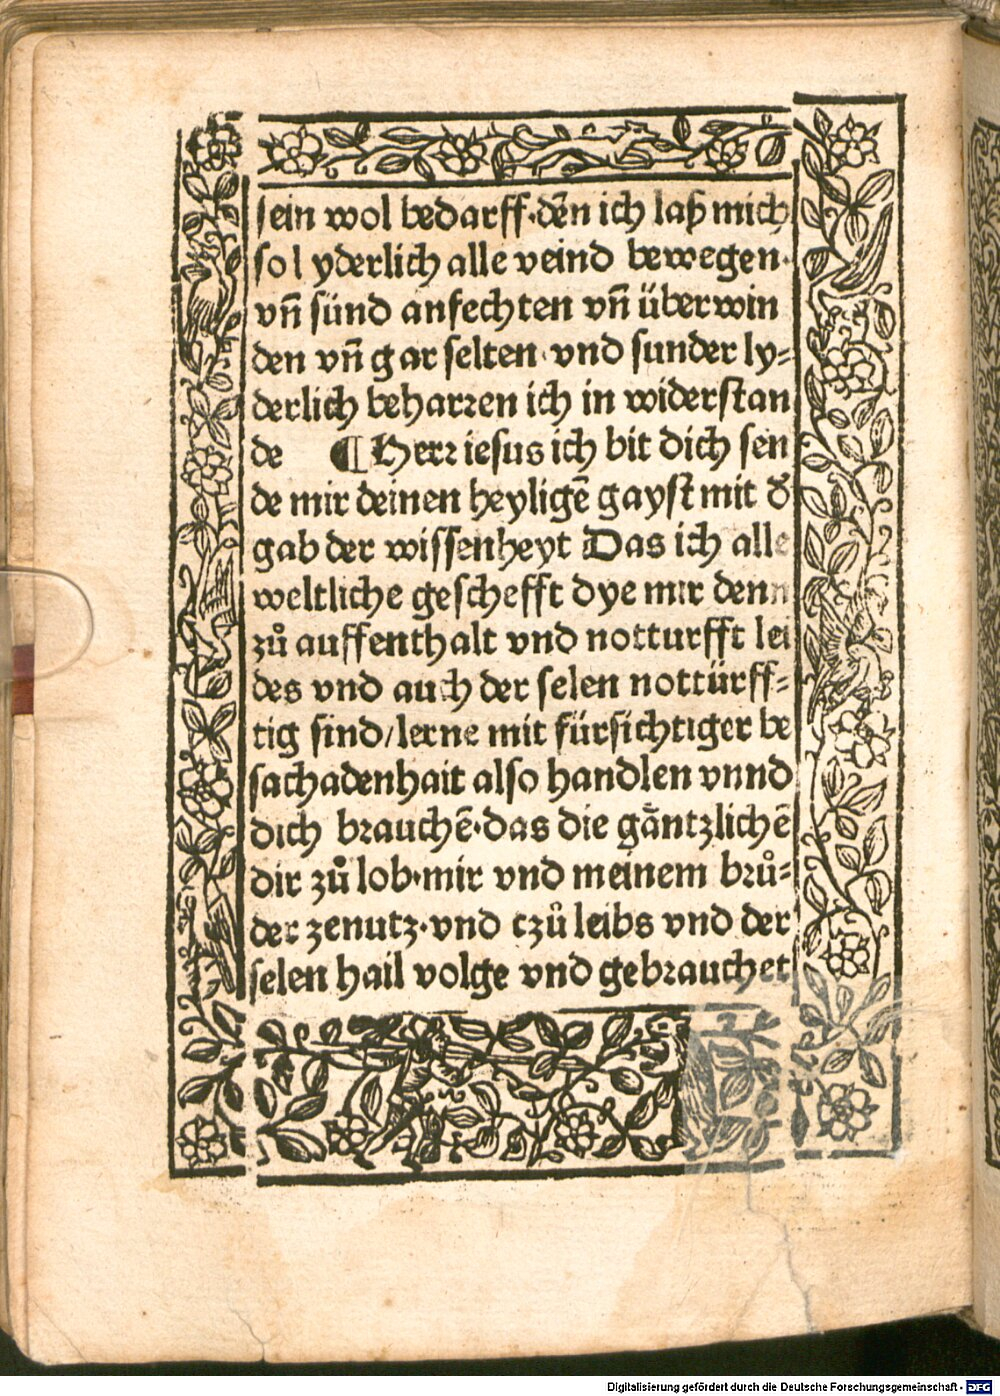 sein wol bedarff·deñ ich laß mich
so l yderlich alle veind bewegen·
vñ sünd anfechten vñ überwin
den vñ gar selten·vnd sunder ly⸗
derlich beharꝛen ich in widerstan
de ¶ Herꝛ iesus ich bit dich sen
de mir deinen heyligē gayst mit d̕
gab der wissenheyt Das ich alle
weltliche geschefft dye mir denn
zů auffenthalt vnd notturfft lei
des vnd auch der selen nottürff⸗
tig sind/lerne mit fürsichtiger be
sachadenhait also handlen vnnd
dich brauchē·das die gäntzlichē
dir zů lob·mir vnd meinem bꝛů⸗
der zenutz·vnd tzů leibs vnd der
selen hail volge vnd gebꝛauchet
Digitalisierung gefördert durch die Deutsche Forschungsgemeinschaft - DFG